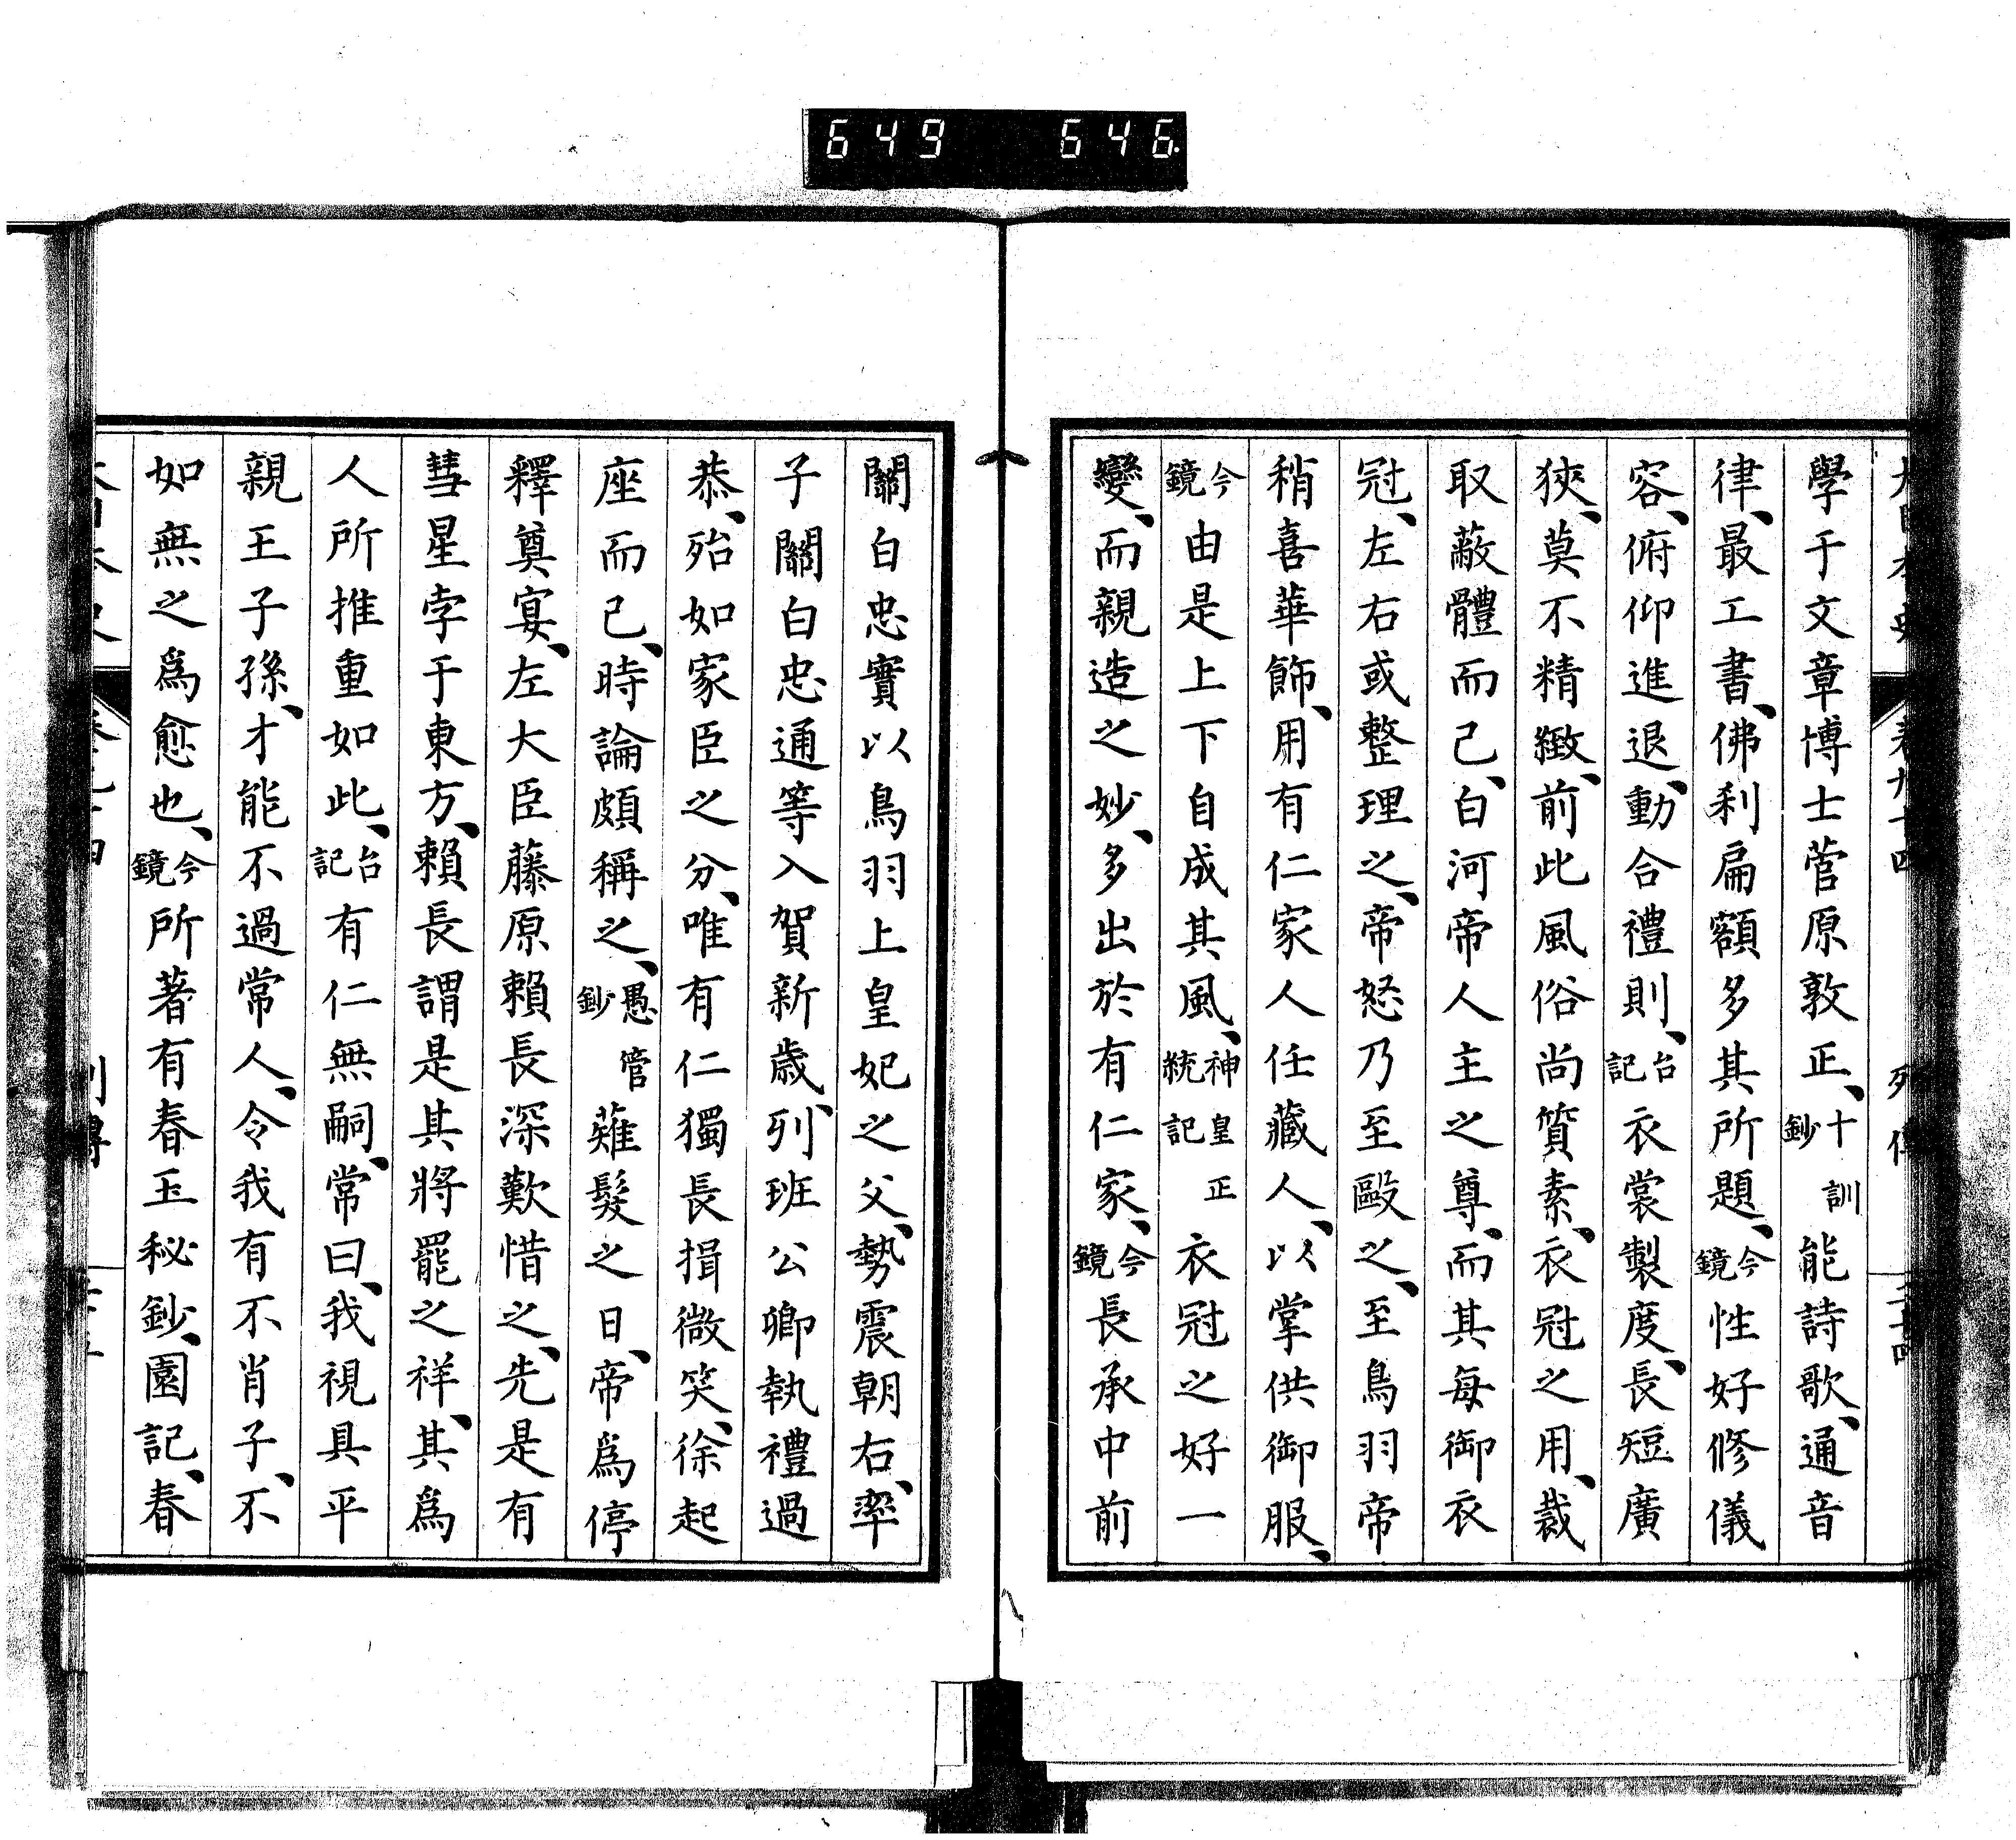 649 646
學于文章博士菅原敦正、十訓鈔能詩歌、通音
律、最工書、佛刹扁額多其所題、今鏡性好修儀
容、俯仰進退、動合禮則、台記衣裳製度、長短廣
狹、莫不精緻、前此風俗尚質素、衣冠之用、裁
取蔽體而己、白河帝人主之尊、而其每御衣
冠、左右或整理之、帝怒乃至毆之、至鳥羽帝
稍喜華飾、用有仁家人任藏人、以掌供御服、
今鏡由是上下自成其風、神皇正統記衣冠之好一
變、而親造之妙、多出於有仁家、今鏡長承中前
關白忠實以鳥羽上皇妃之父、勢震朝右、率
子關白忠通等入賀新歲、列班公卿執禮過
恭、殆如家臣之分、唯有仁獨長揖微笑、徐起
座而己、時論頗稱之、愚管鈔薙髮之日、帝爲停
釋奠宴、左大臣藤原賴長深歎惜之、先是有
彗星孛于東方、賴長謂是其將罷之祥、其爲
人所推重如此、台記有仁無嗣、常曰、我視具平
親王子孫、才能不過常人、令我有不肖子、不
如無之爲愈也、今鏡所著有春玉秘鈔、園記、春